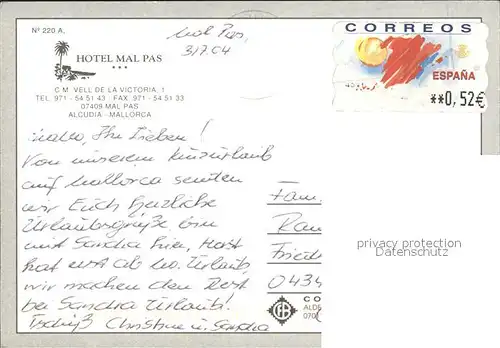 Nº 220 A.
HOTEL MAL PAS
***
C.M. VELL DE LA VICTORIA, 1
TEL. 971 - 54 51 43 FAX 971 - 54 51 33
07409 MAL PAS
ALCUDIA - MALLORCA
Mal Pas,
3/7.04
CORREOS
ESPAÑA
**0,52€
Hallo, Ihr Lieben!
Von unserem Kurzurlaub
auf Mallorca senden
wir Euch herzliche
Urlaubsgrüße bin
mit Sandra hier, Horst
hat erst ab Mo. Urlaub,
wir machen den Rest
bei Sandra Urlaub!
Tschüß Christine u. Sandra
Fam.
Friede
0434
privacy protection
Datenschutz
CO
ALDE
070